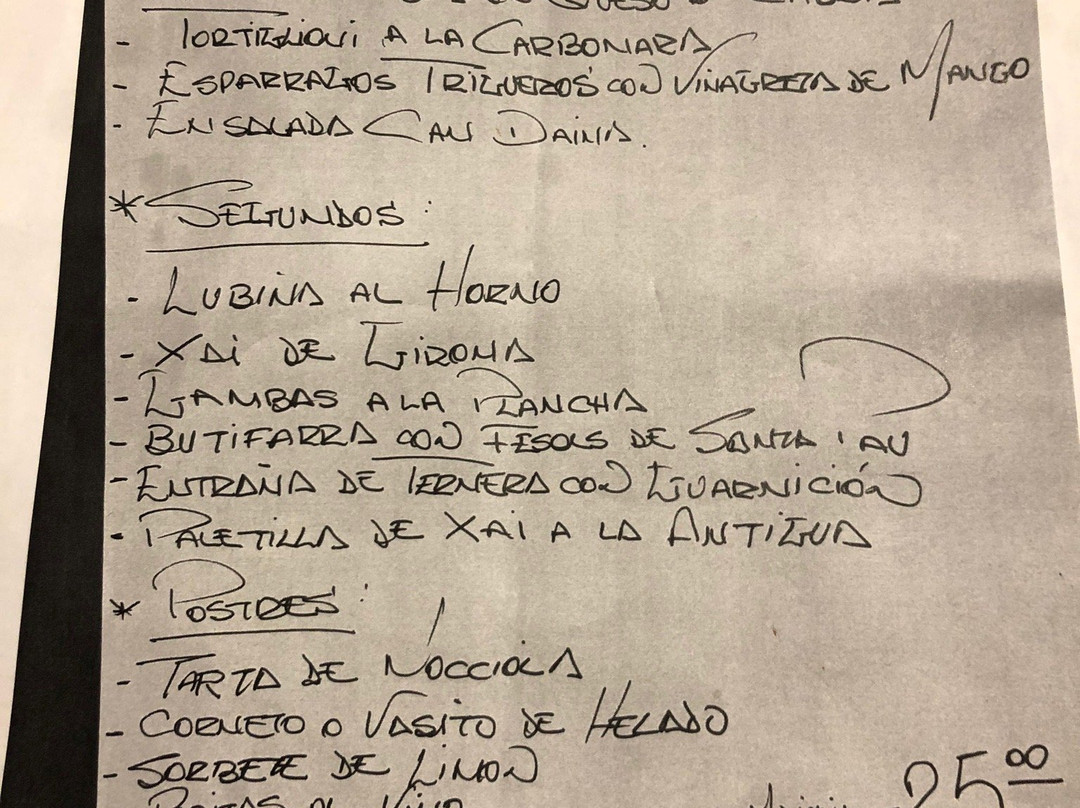 - TORTIGLIONI A LA CARBONARA
- ESPARRAGOS TRIGUEROS CON VINAGRETA DE MANGO
- ENSALADA CAN DAINA.
* SEGUNDOS:
- LUBINA AL HORNO
- XAI DE GIRONA
- GAMBAS A LA PLANCHA
- BUTIFARRA CON FESOLS DE SANTA PAU
- ENTRAÑA DE TERNERA CON GUARNICIÓN
- PALETILLA DE XAI A LA ANTIGUA
* POSTRES:
- TARTA DE NOCCIOLA
- CORNETO O VASITO DE HELADO
- SORBETE DE LIMON
AL VINO
25,00